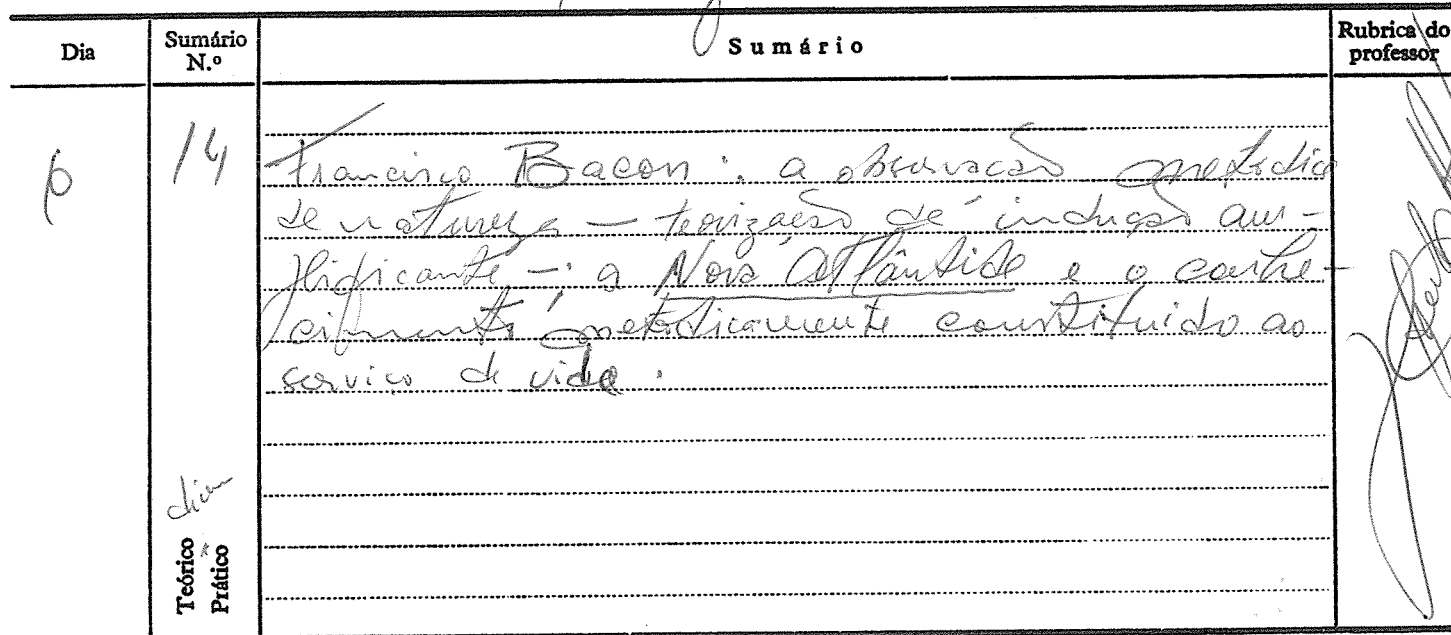 Dia
Sumário N.º
Sumário
Rubrica do professor
6
14
Francisco Bacon: a observação metódica
de natureza — teorização de indução am-
plificante —; a Nova Atlântida e o conhe-
cimento metodicamente constituído ao
serviço de vida.
Teórico
Prático